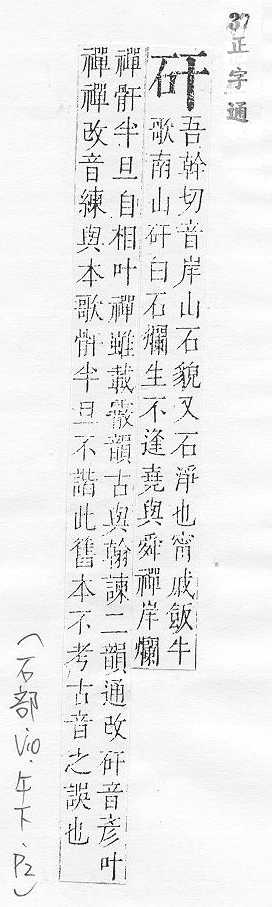 37
正字通
矸
吾幹切音岸山石貌又石淨也甯戚飯牛
歌南山矸白石爛生不逢堯與舜禪岸爛
禪骭半旦自相叶禪雖載霰韻古與翰諫二韻通改矸音彥叶
禪禪改音練與本歌骭半旦不諧此舊本不考古音之誤也
(石部 Vio. 午下. P2)